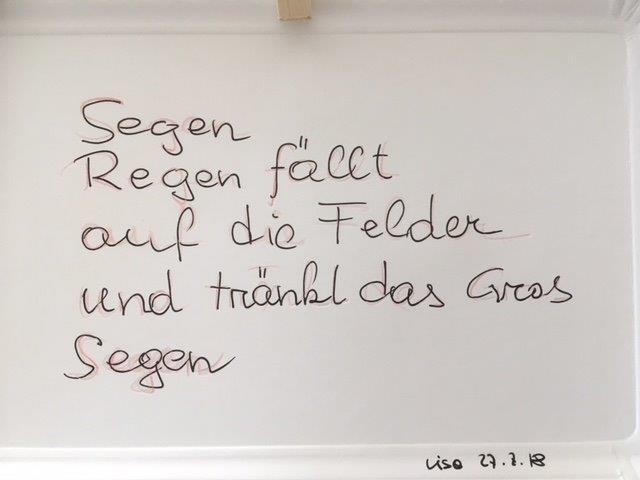 Segen
Regen fällt
auf die Felder
und tränkt das Gras
Segen
Lisa 27.7.18